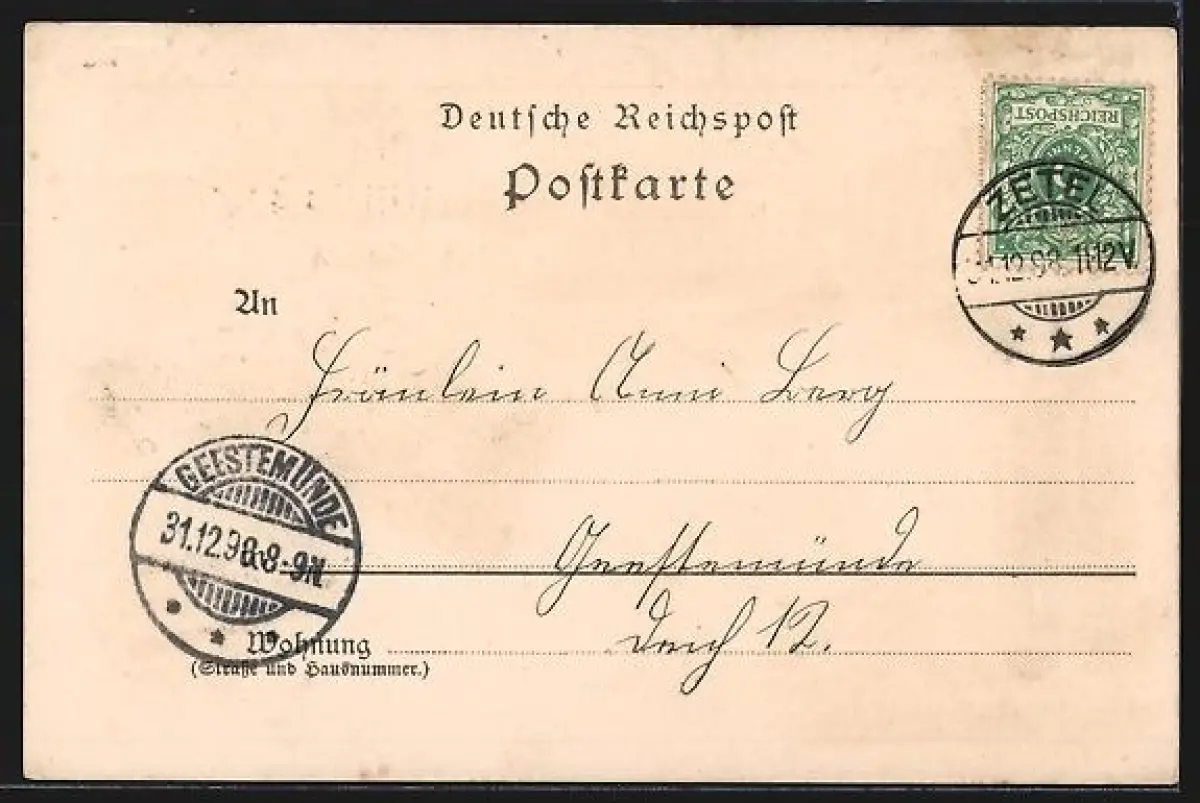 Deutsche Reichspost
Postkarte
REICHSPOST
ZETEL
31.12.98 11-12V.
An
Fräulein Anni Berg
GEESTEMÜNDE
31.12.98 8-9N
Geestemünde
Wohnung
Deich 12.
(Straße und Hausnummer.)